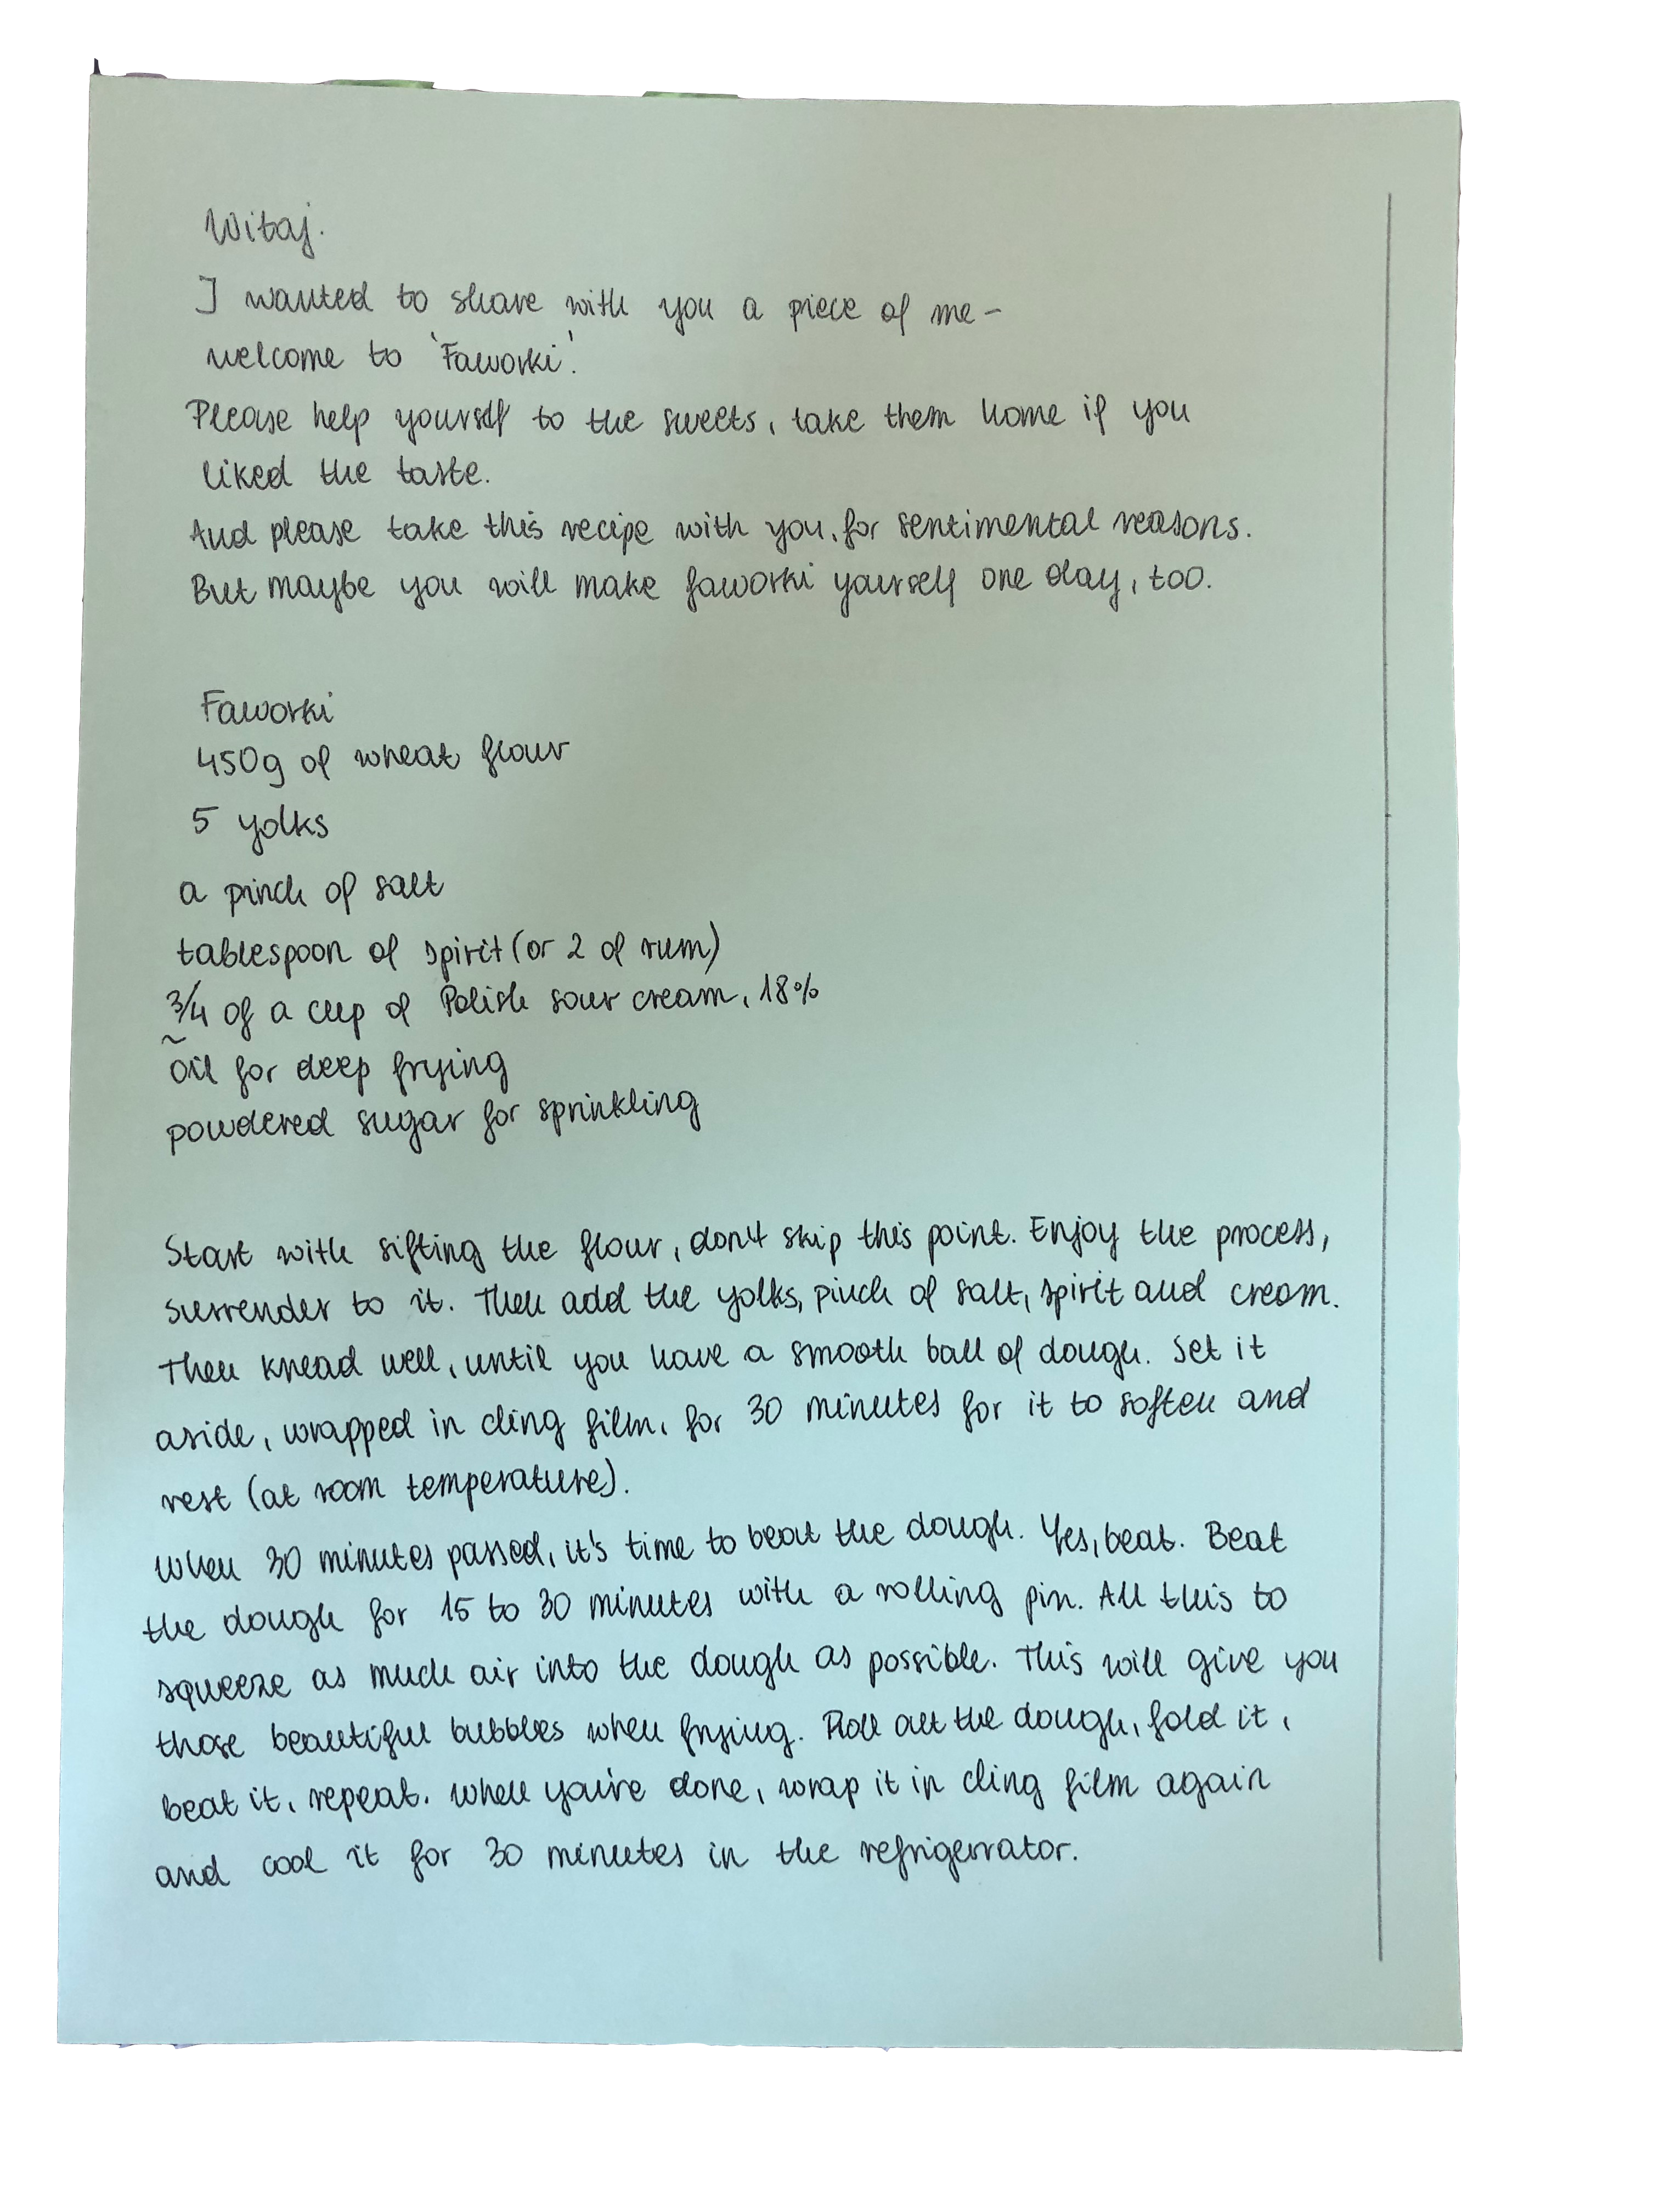 Witaj.
I wanted to share with you a piece of me –
welcome to 'Faworki'.
Please help yourself to the sweets, take them home if you
liked the taste.
And please take this recipe with you, for sentimental reasons.
But maybe you will make faworki yourself one day, too.
Faworki
450g of wheat flour
5 yolks
a pinch of salt
tablespoon of spirit (or 2 of rum)
3/4 of a cup of Polish sour cream, 18%
~
oil for deep frying
powdered sugar for sprinkling
Start with sifting the flour, don't skip this point. Enjoy the process,
surrender to it. Then add the yolks, pinch of salt, spirit and cream.
Then knead well, until you have a smooth ball of dough. Set it
aside, wrapped in cling film, for 30 minutes for it to soften and
rest (at room temperature).
When 30 minutes passed, it's time to beat the dough. Yes, beat. Beat
the dough for 15 to 30 minutes with a rolling pin. All this to
squeeze as much air into the dough as possible. This will give you
those beautiful bubbles when frying. Roll out the dough, fold it,
beat it, repeat. When you're done, wrap it in cling film again
and cool it for 30 minutes in the refrigerrator.